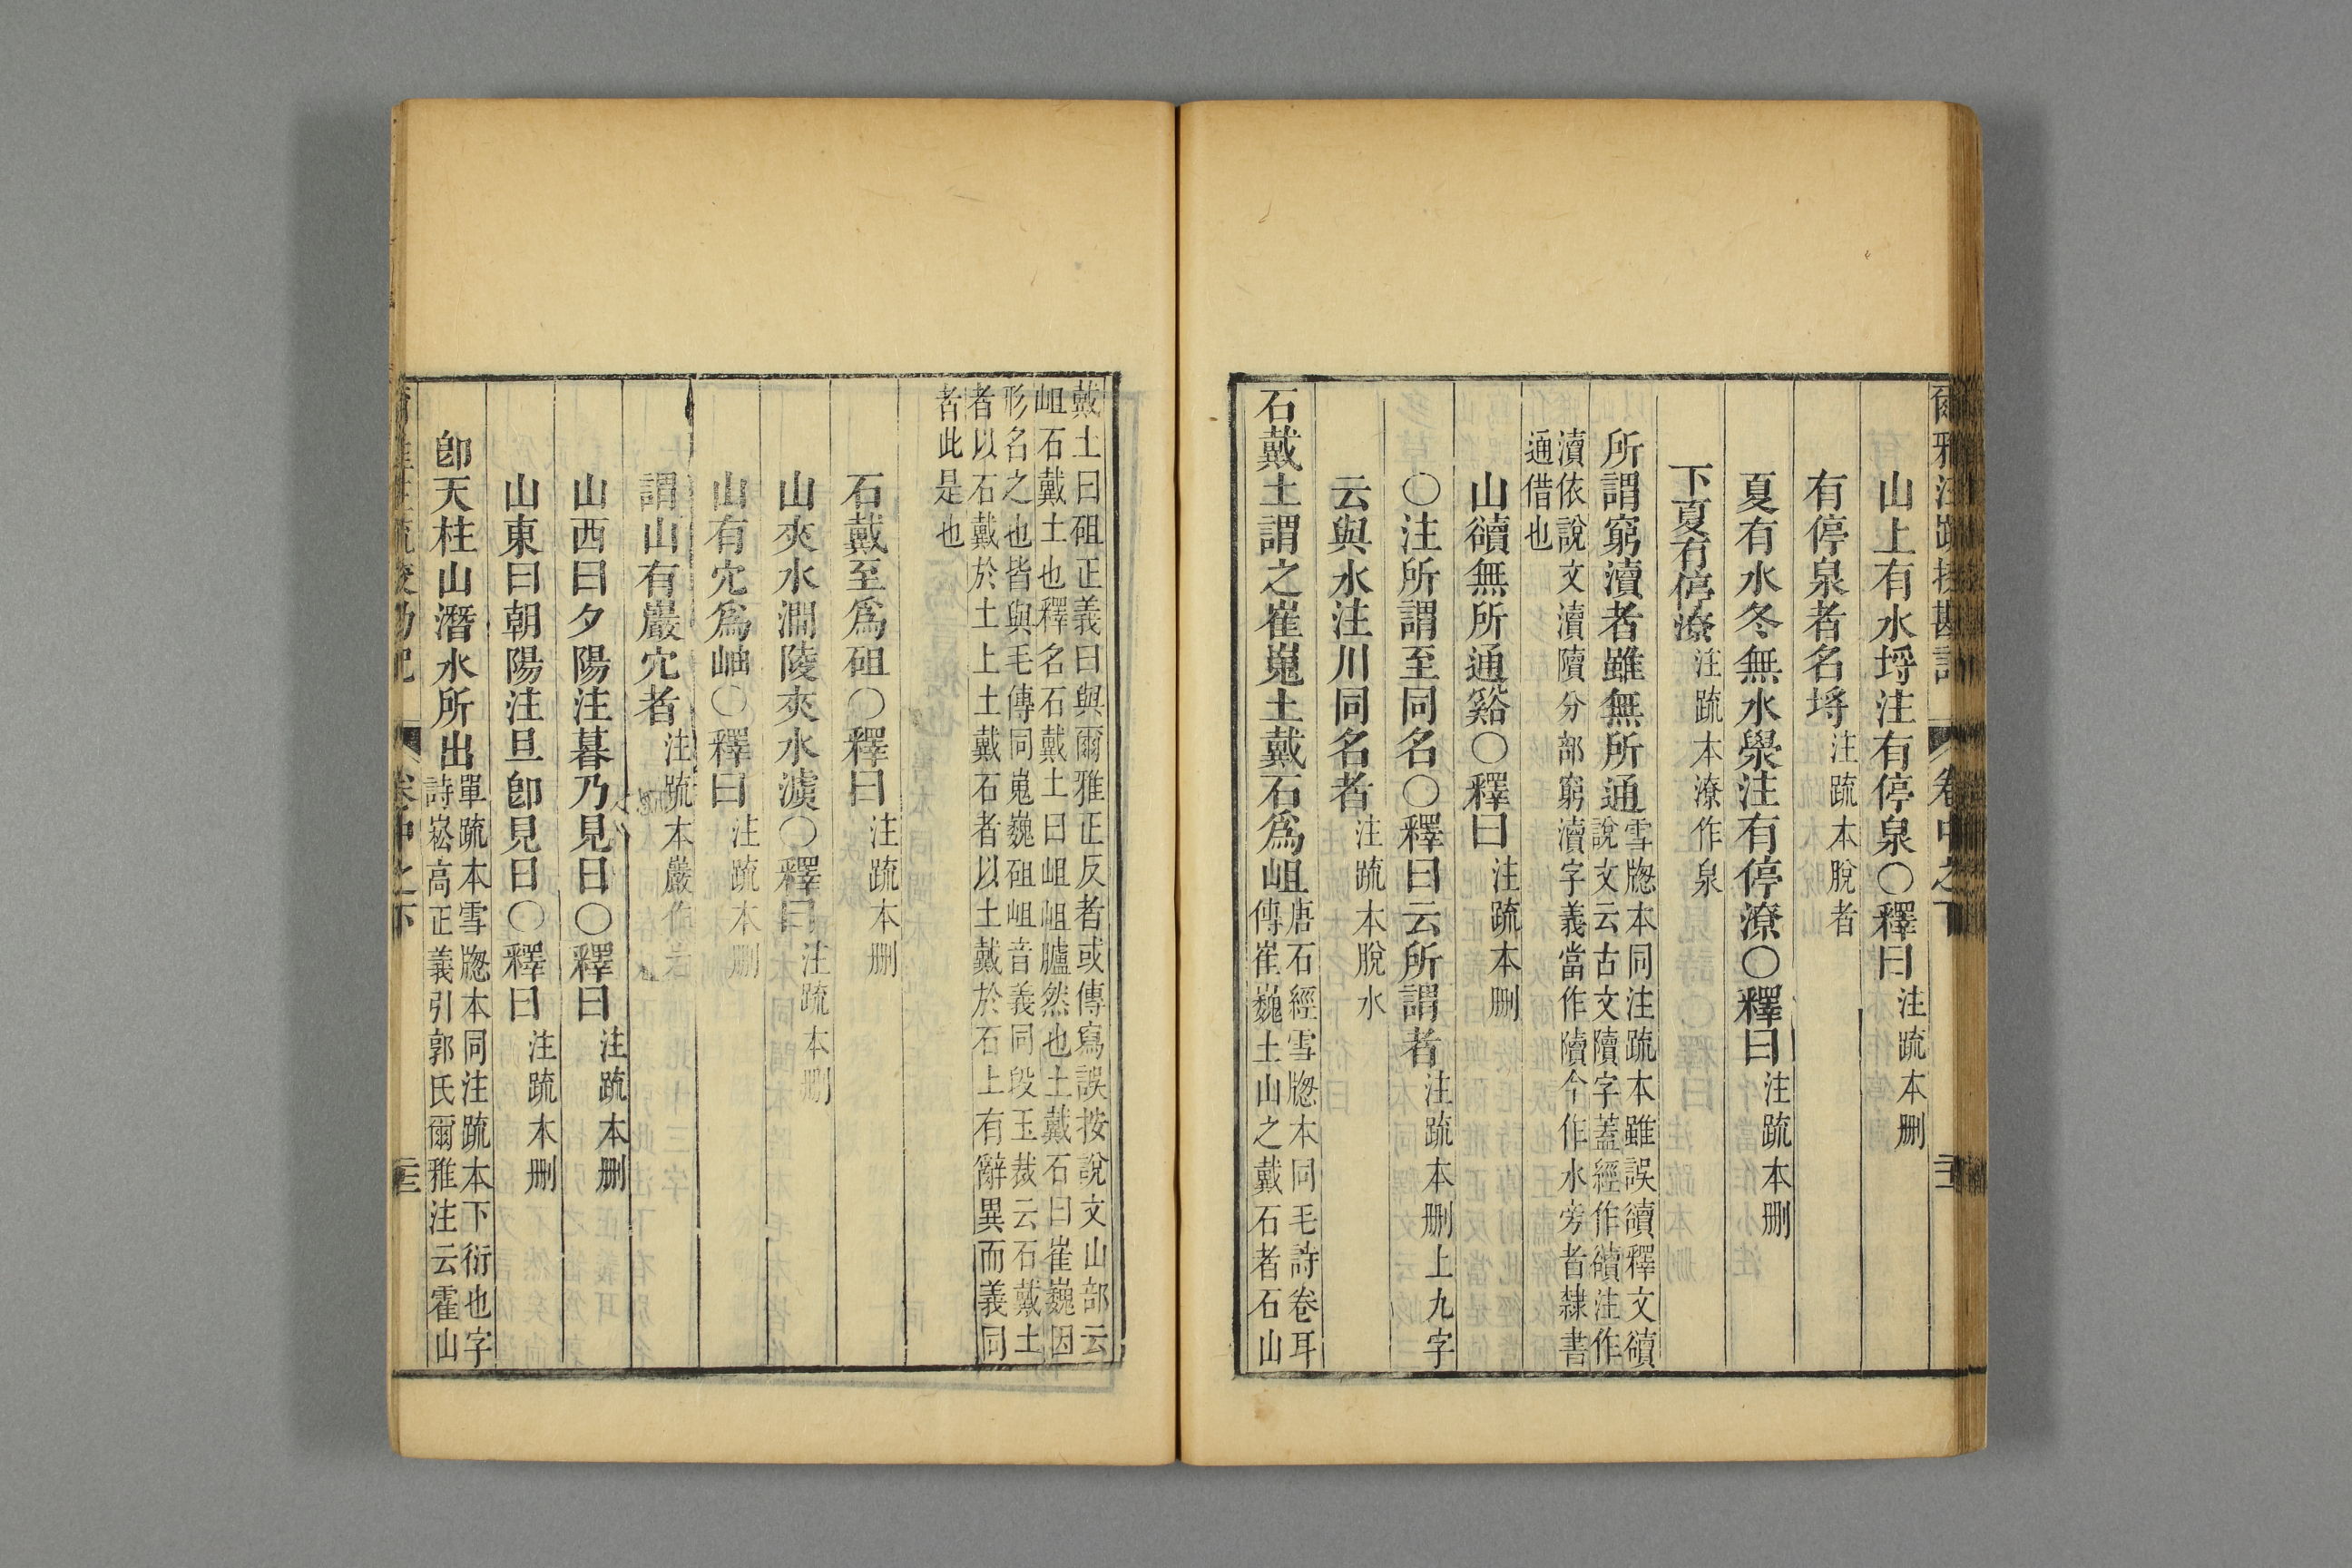 爾雅注疏挍勘記 卷中之下 三
山上有水埒注有停泉○釋曰注疏本刪
有停泉者名埓注疏本脫者
夏有水冬無水澩注有停潦○釋曰注疏本刪
下夏有停潦注疏本潦作泉
所謂窮瀆者雖無所通雪牕本同注疏本雖誤𧸷釋文𧸷
說文云古文隫字蓋經作𧸷注作
瀆依說文瀆隫分部窮瀆字義當作隫今作水旁者隸書
通借也
山𧸷無所通谿○釋曰注疏本刪
○注所謂至同名○釋曰云所謂者注疏本刪上九字
云與水注川同名者注疏本脫水
石戴土謂之崔嵬土戴石爲岨唐石經雪牕本同毛詩卷耳
傳崔巍土山之戴石者石山
戴土曰砠正義曰與爾雅正反者或傳寫誤按說文山部云
岨石戴土也釋名石戴土曰岨岨臚然也土戴石曰崔巍因
形名之也皆與毛傳同嵬巍砠岨音義同段玉裁云石戴土
者以石戴於土上土戴石者以土戴於石上有辭異而義同
者此是也
石戴至爲砠○釋曰注疏本刪
山夾水澗陵夾水澞○釋曰注疏本刪
山有穴爲岫○釋曰注疏本刪
謂山有巖穴者注疏本巖作岩
山西曰夕陽注暮乃見日○釋曰注疏本刪
山東曰朝陽注旦卽見日○釋曰注疏本刪
卽天柱山潛水所出單疏本雪牕本同注疏本下衍也字
詩崧高正義引郭氏爾雅注云霍山
爾雅注疏挍勘記 卷中之下